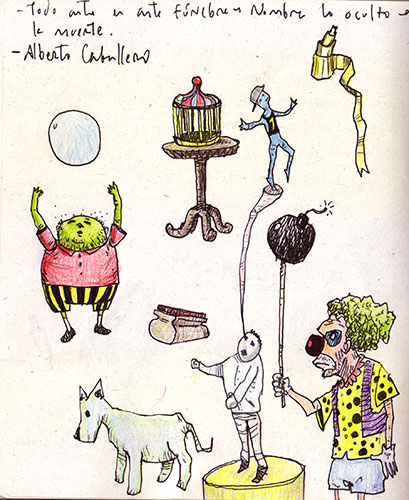 -Todo arte es arte fúnebre Nombra lo oculto
la muerte.
-Alberto Caballero